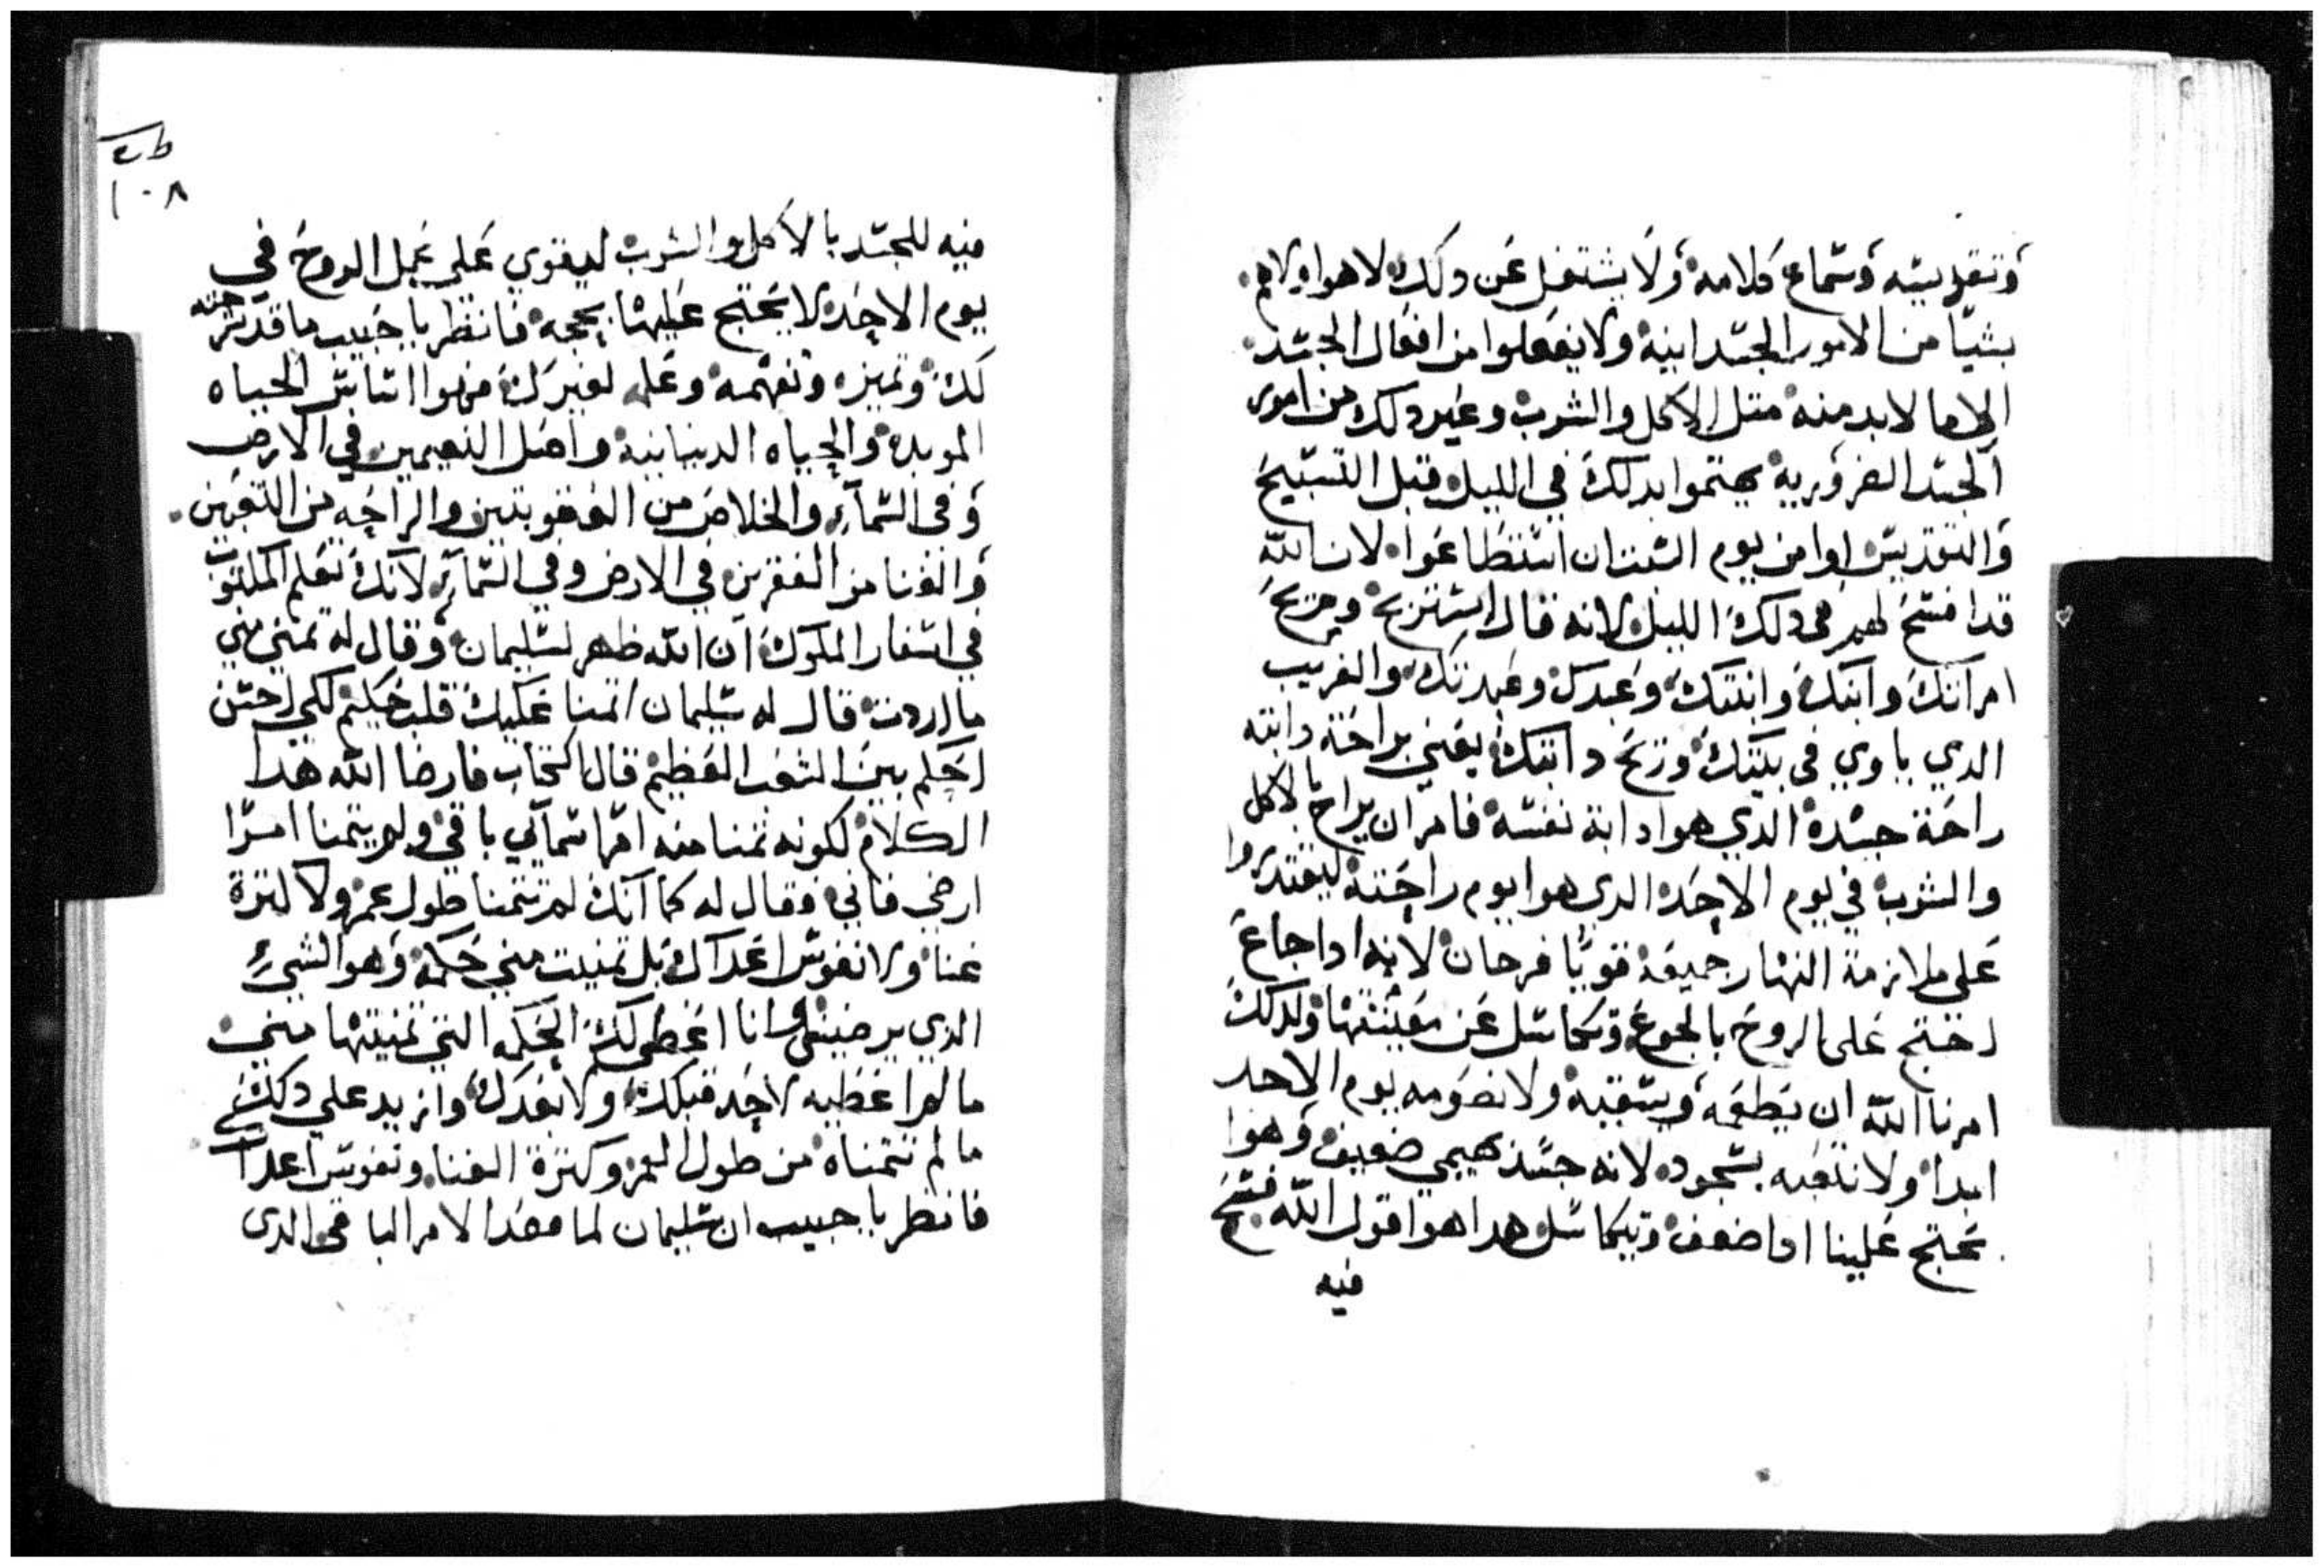 وتقديسه وسماع كلامه ولا يشتغل عن دلك لاهوا ولاهم
بشيا من الامور الجسدانية ولا يفعلوا من افعال الجسد
الا ما لابد منه متل الاكل والشرب وغير دلك من امور
الجسد الضرورية يهتموا بدلك في الليل قبل التسبيح
والتقديس اوا من يوم السبت ان استطاعوا لان الله
قدا فسح لهم في دلك الليل لانه قال استريح وتريح
امراتك وابنك وابنتك وعبدك وعبدتك والغريب
الدي ياوي في بيتك وتريح دابتك يعني براحة دابته
راحة جسده الدي هوا دابة نفسه فامر ان يراح بالاكل
والشرب في يوم الاحد الدي هوا يوم راحته ليقتدروا
على ملازمة النهار جميعه قويا فرحان لانه ادا جاع
احتج على الروح بالجوع وتكاسل عن معينتها ولدلك
امرنا الله ان نطعمه ونسقيه ولا نصومه يوم الاحد
ابدا ولا نتعبه بسجود لانه جسد بهيمي ضعيف وهوا
يحتج علينا ادا ضعف وتيكاسل هدا هوا قول الله فسح
فيه
١٠٨
فيه للجسد بالاكل والشرب ليقوي على عمل الروح في
يوم الاحد لا يحتج عليها بحجه فانظر يا حبيب ما قد شرحته
لك وتميزه وتفهمه وعلمه لغيرك فهوا اساس الحياه
الموبده والحياه الدنيانية واصل النعيمين في الارض
وفي السماء والخلاص من العقوبتين والراحه من التعبين
والغنا من الفقرين في الارض وفي السماء لانك تعلم المكتوب
في اسفار الملوك ان الله ظهر لسليمان وقال له تمني مني
ما اردت قال له سليمان اتمنا عليك قلب حكيم لكي احسن
احكم بين الشعب العظيم قال الكتاب فارضا الله هدا
الكلام لكونه تمنا منه امرا سمآئي باقي ولم يتمنا امرا
ارضي فاني وقال له كما انك لم تتمنا طول عمر ولا كترة
غنا ولا نفوس اعداك بل تمنيت مني حكمة وهو الشيء
الدي يرضيني وانا اعطي لك الحكمه التي تمنيتها مني
مالم اعطيه لاحد قبلك ولا بعدك وازيد على دلك
مالم تتمناه من طول العمر وكترة الغنا ونفوس اعداك
فانظر يا حبيب ان سليمان لما قصد الامر الباقي الدي